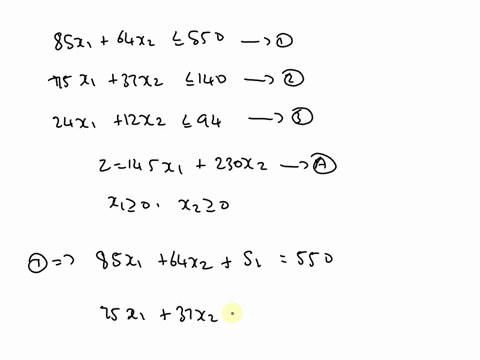 85x₁ + 64x₂ ≤ 550 → ①
75x₁ + 37x₂ ≤ 140 → ②
24x₁ + 12x₂ ≤ 94 → ③
Z = 145x₁ + 230x₂ → Ⓐ
x₁ ≥ 0, x₂ ≥ 0
① ⇒ 85x₁ + 64x₂ + S₁ = 550
75x₁ + 37x₂